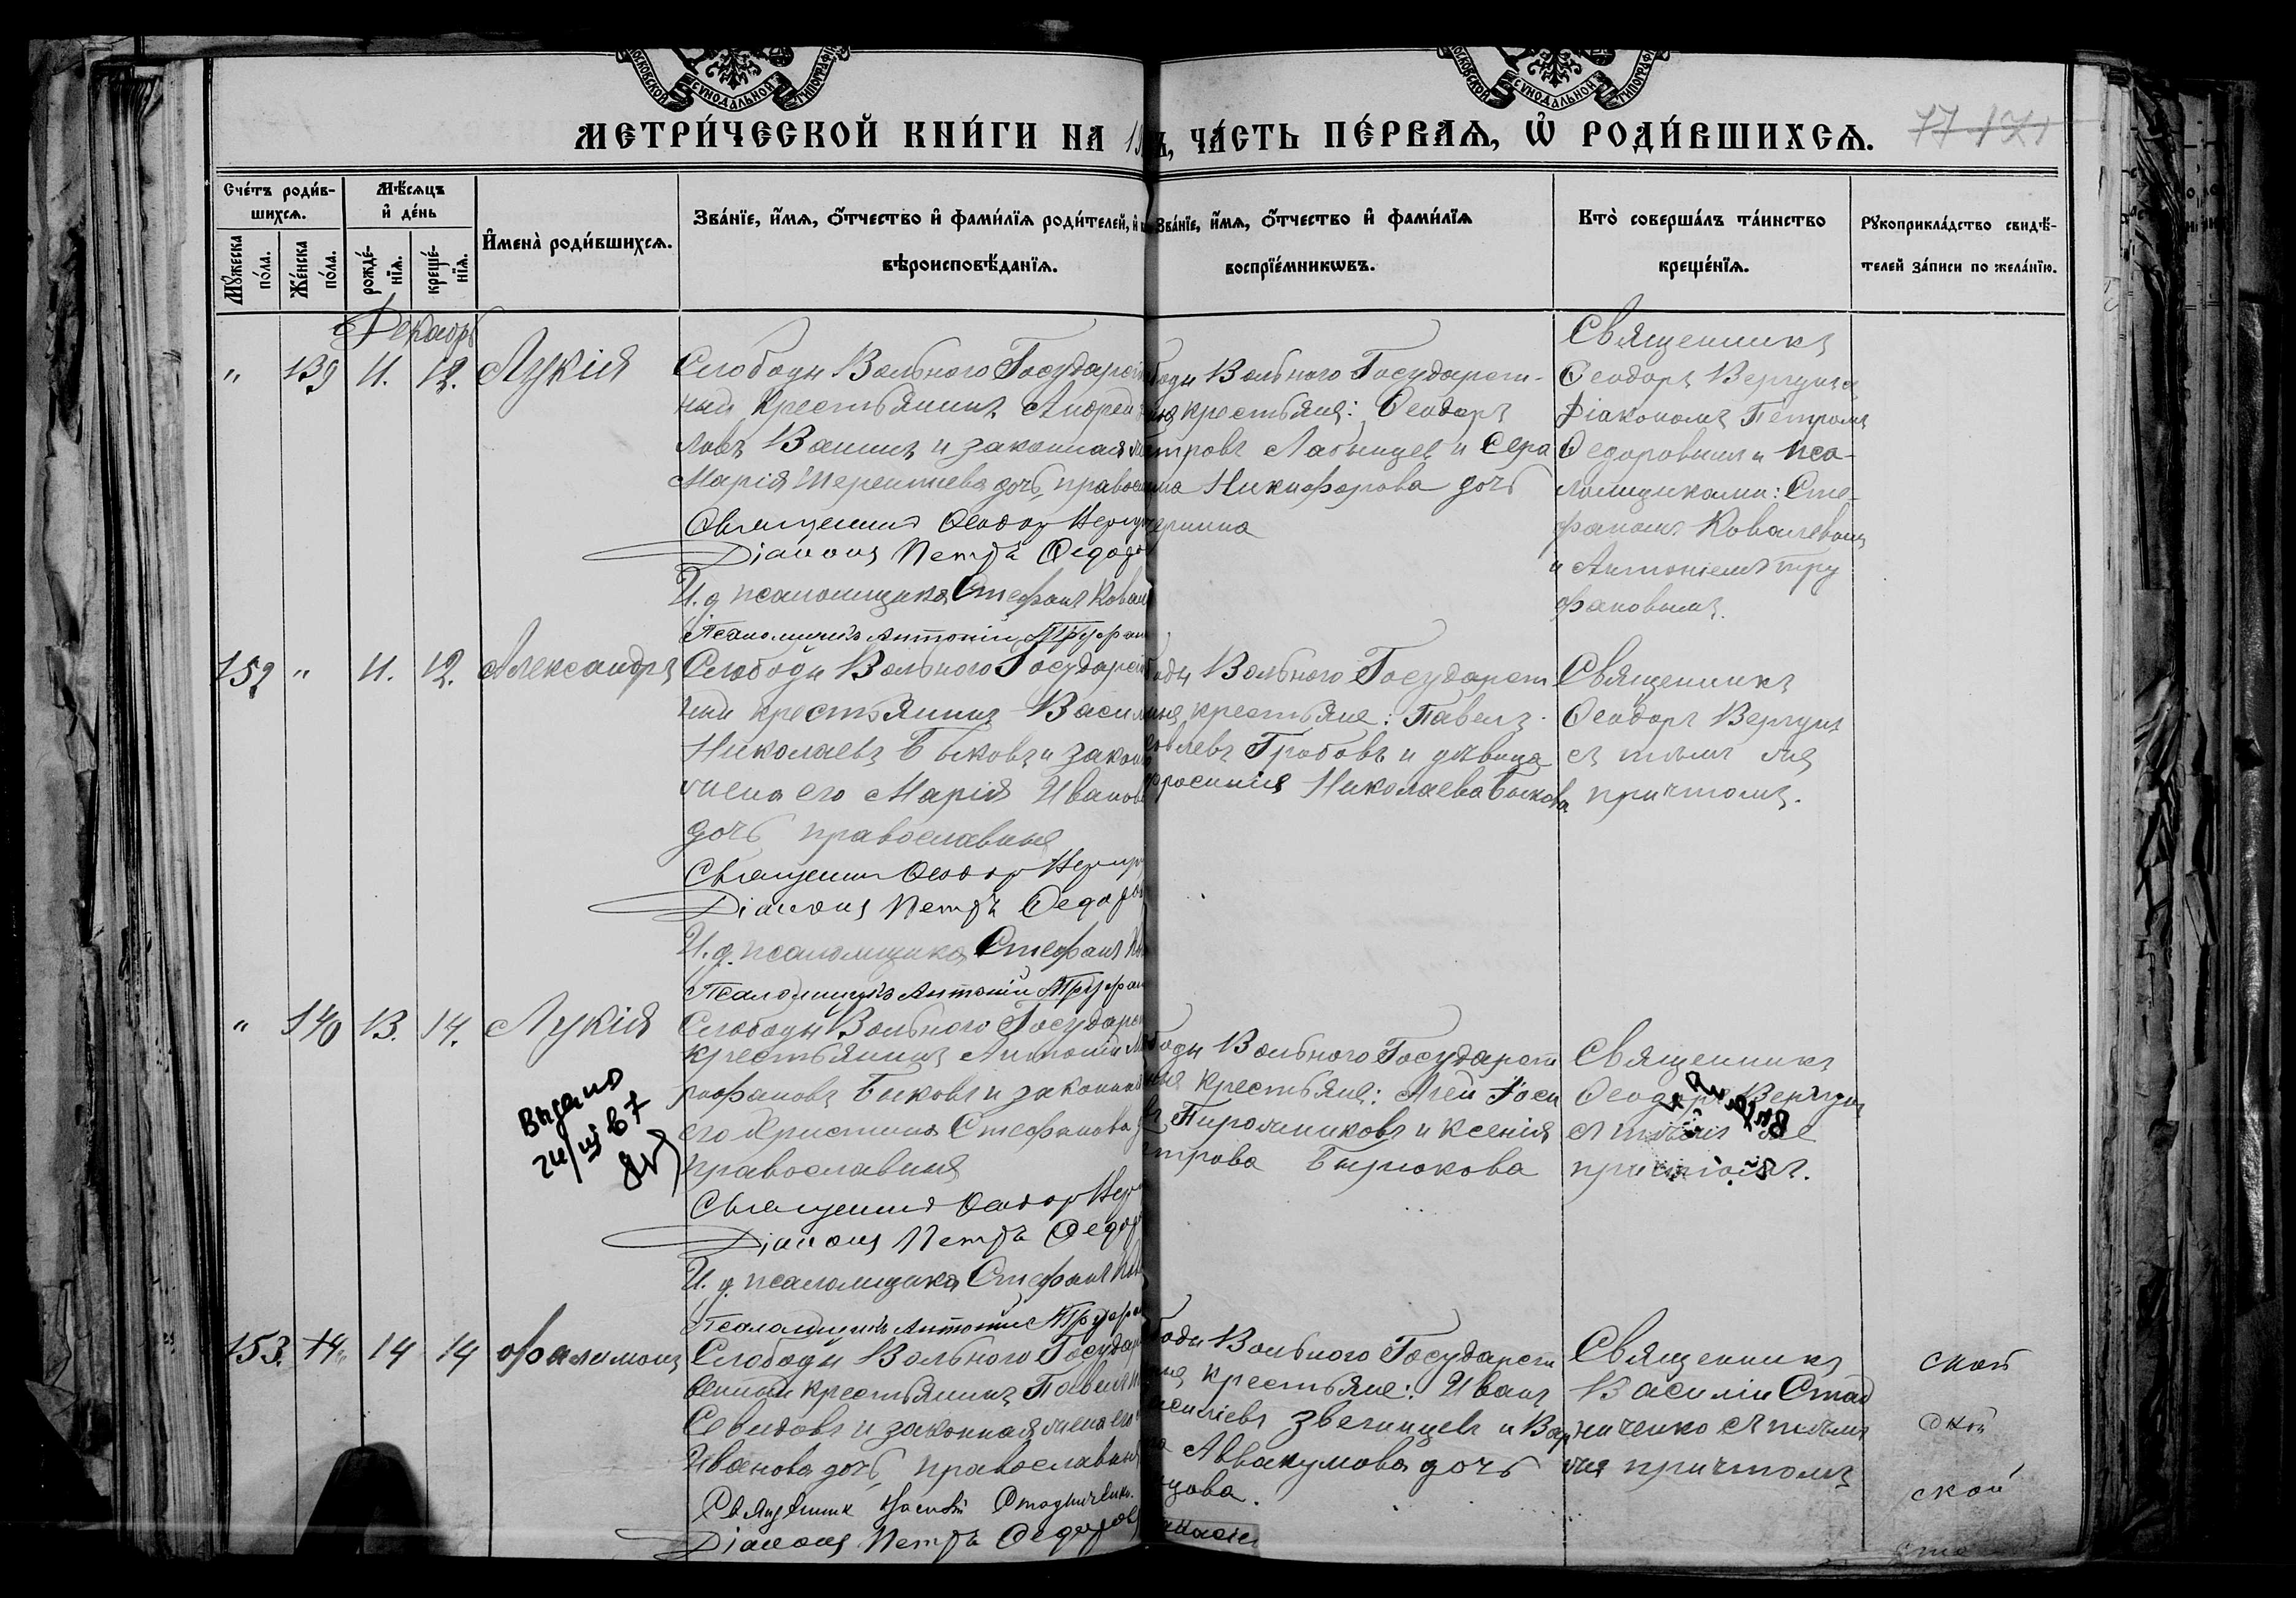 МОСКОВСКОЙ СѴНОДАЛЬНОЙ ТИПОГРАФІИ
МОСКОВСКОЙ СѴНОДАЛЬНОЙ ТИПОГРАФІИ
МЕТРИ́ЧЕСКОЙ КНИ́ГИ НА
ЧА́СТЬ ПЕ́РВАЯ, Ѿ РОДИ́ВШИХСЯ.
Сче́тъ роди́в-
шихся.
Мѣ́сяцъ
и҆ де́нь
Мꙋ́жеска
по́ла.
Же́нска
по́ла.
рожде́-
нїя.
креще́-
нїя.
И҆мена̀ роди́вшихся.
Зва́нїе, и҆́мя, ѻ҆́тчество и҆ фами́лїя роди́телей, и҆
вѣроисповѣ́данїя.
Зва́нїе, и҆́мя, ѻ҆́тчество и҆ фами́лїя
воспрїе́мникѡвъ.
Кто̀ соверша́лъ та́инство
креще́нїя.
Рꙋкоприкла́дство свидѣ́-
телей за́писи по жела́нїю.
Декабрь
" 139 11. 12. Лукія
Слободы Вольного Государст
ный крестьянинъ Андрей
ловъ Ванинъ и законная
Марія Терентиева дочь, правос
Священникъ Феодор Вергун
Діаконъ Петръ Федоро
И. д. псаломщика Стефанъ Ковал
Псаломщикъ Антоній Труфан
боды Вольного Государст-
ныя крестьяне: Феодоръ
тровъ Лабынцев и Сера
ма Никифорова дочь
Священникъ
Феодоръ Вергунъ с
Діакономъ Петромъ
Федоровымъ и пса-
ломщиками: Сте-
фаномъ Ковалевымъ
и Антоніемъ Тру
фановымъ.
152 " 11. 12. Александръ
Слободы Вольного Государст
ный крестьянинъ Васил
Николаевъ Быковъ и закон
жена его Марія Иванов
дочь православныя
Священник Феодор Вергун
Діаконъ Петръ Федоров
И. д. псаломщика Стефанъ
Псаломщикъ Антоній Труфан
боды Вольного Государст
ныя крестьяне: Павелъ
ковлевъ Гробовъ и дѣвица
фросинія Николаева Быкова
Священникъ
Феодоръ Вергунъ
съ тѣмъ же
причтомъ.
" 140 13. 14. Лукія
Слободы Вольного Государст
крестьянинъ Антоній М
рофановъ Быковъ и законная
его Христина Стефанова
православныя
Священник Феодор Вер
Діаконъ Петръ Федор
И. д. псаломщика Стефанъ
Псаломщикъ Антоній Труфа
Выдано
боды Вольного Государст
ныя крестьяне: Агей
въ Пирожниковъ и Ксенія
трова Бирюкова
Священникъ
Феодоръ Вергун
съ тѣмъ же
причтомъ.
153. 14 14 Филимонъ
Слободы Вольного Государ
венный крестьянинъ Павелъ
и законная жена его
Иванова дочь, православныя
Священник Василій Стадниченко.
Діаконъ Петръ Федоров
боды Вольного Государст
ныя крестьяне: Иванъ
асиліевъ Звегинцевъ и Вар
Аввакумова дочь
Священникъ
Василій Стад
ниченко съ тѣмъ
же причтомъ
ской
ской